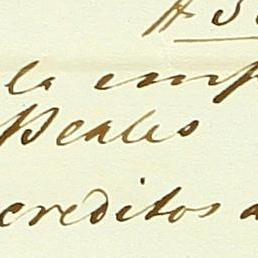 la emp
Reales
creditos a